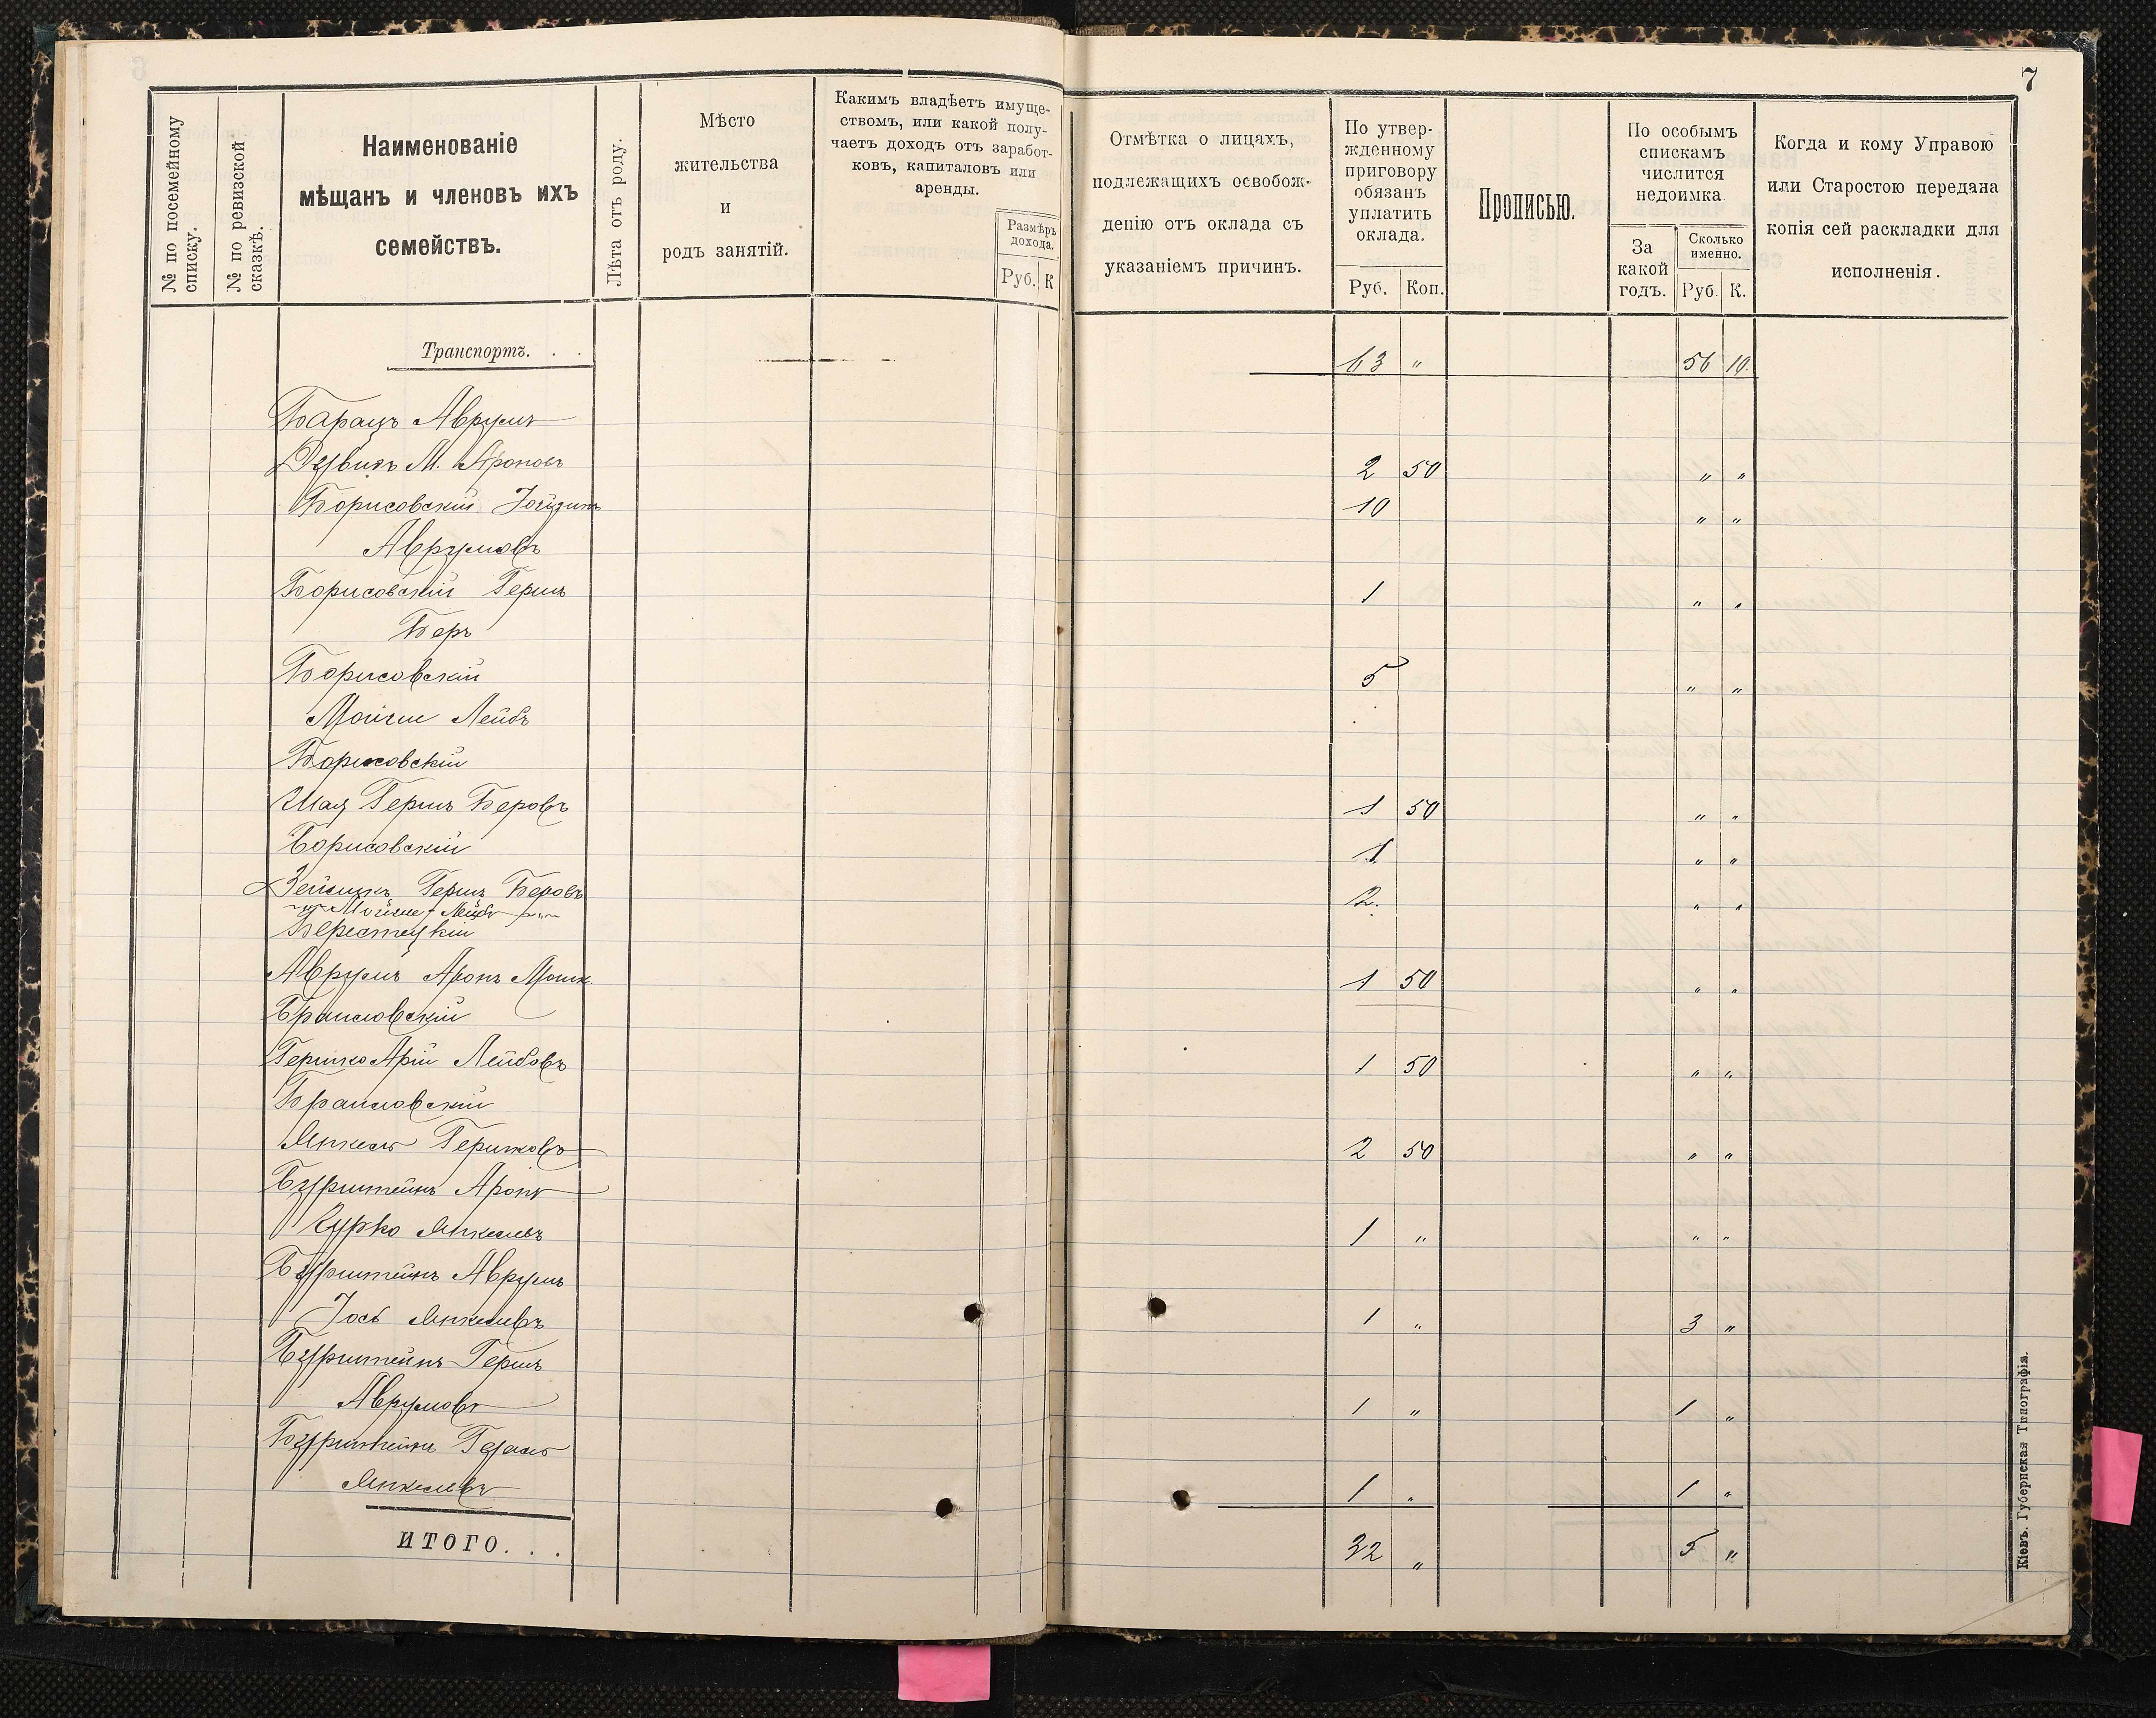 7
№ по посемейному
списку.
№ по ревизской
сказкѣ.
Наименованіе
мѣщанъ и членовъ ихъ
семействъ.
Лѣта отъ роду.
Мѣсто
жительства
и
родъ занятій.
Какимъ владѣетъ имуще-
ствомъ, или какой полу-
чаетъ доходъ отъ заработ-
ковъ, капиталовъ или
аренды.
Размѣръ
дохода.
Руб. К
Отмѣтка о лицахъ,
подлежащихъ освобож-
денію отъ оклада съ
указаніемъ причинъ.
По утвер-
жденному
приговору
обязанъ
уплатить
оклада.
Руб. Коп.
Прописью.
По особымъ
спискамъ
числится
недоимка
За
какой
годъ.
Сколько
именно.
Руб. К.
Когда и кому Управою
или Старостою передана
копія сей раскладки для
исполненія.
Транспортъ. . . 63 „ 56 10.
Барацъ Аврумъ
М. Ароновъ 2 50 „ „
Борисовскій 10 „ „
Аврумовъ
Борисовскій Гершъ 1 „ „
Беръ
Борисовскій 5 „ „
Мойше Лейбъ
Борисовскій
Шая Гершъ Беровъ 1 50 „ „
Борисовскій 1 „ „
Гершъ Беровъ 2. „ „
Мойше Лейбъ
Берестецкій
Аврумъ Аронъ Мошк. 1 50 „ „
Браиловскій
Гершко Арій Лейбовъ 1 50 „ „
Браиловскій
Янкель Гершковъ 2 50 „ „
Бурштейнъ Аронъ
Янкелевъ 1 „ „ „
Бурштейнъ Аврумъ
Іось Янкелевъ 1 „ 3 „
Бурштейнъ Гершъ
Аврумовъ 1 „ 1 „
Бурштейнъ
Янкелевъ 1 „ 1 „
ИТОГО. . . 32 „ 5 „
Кіевъ. Губернская Типографія.